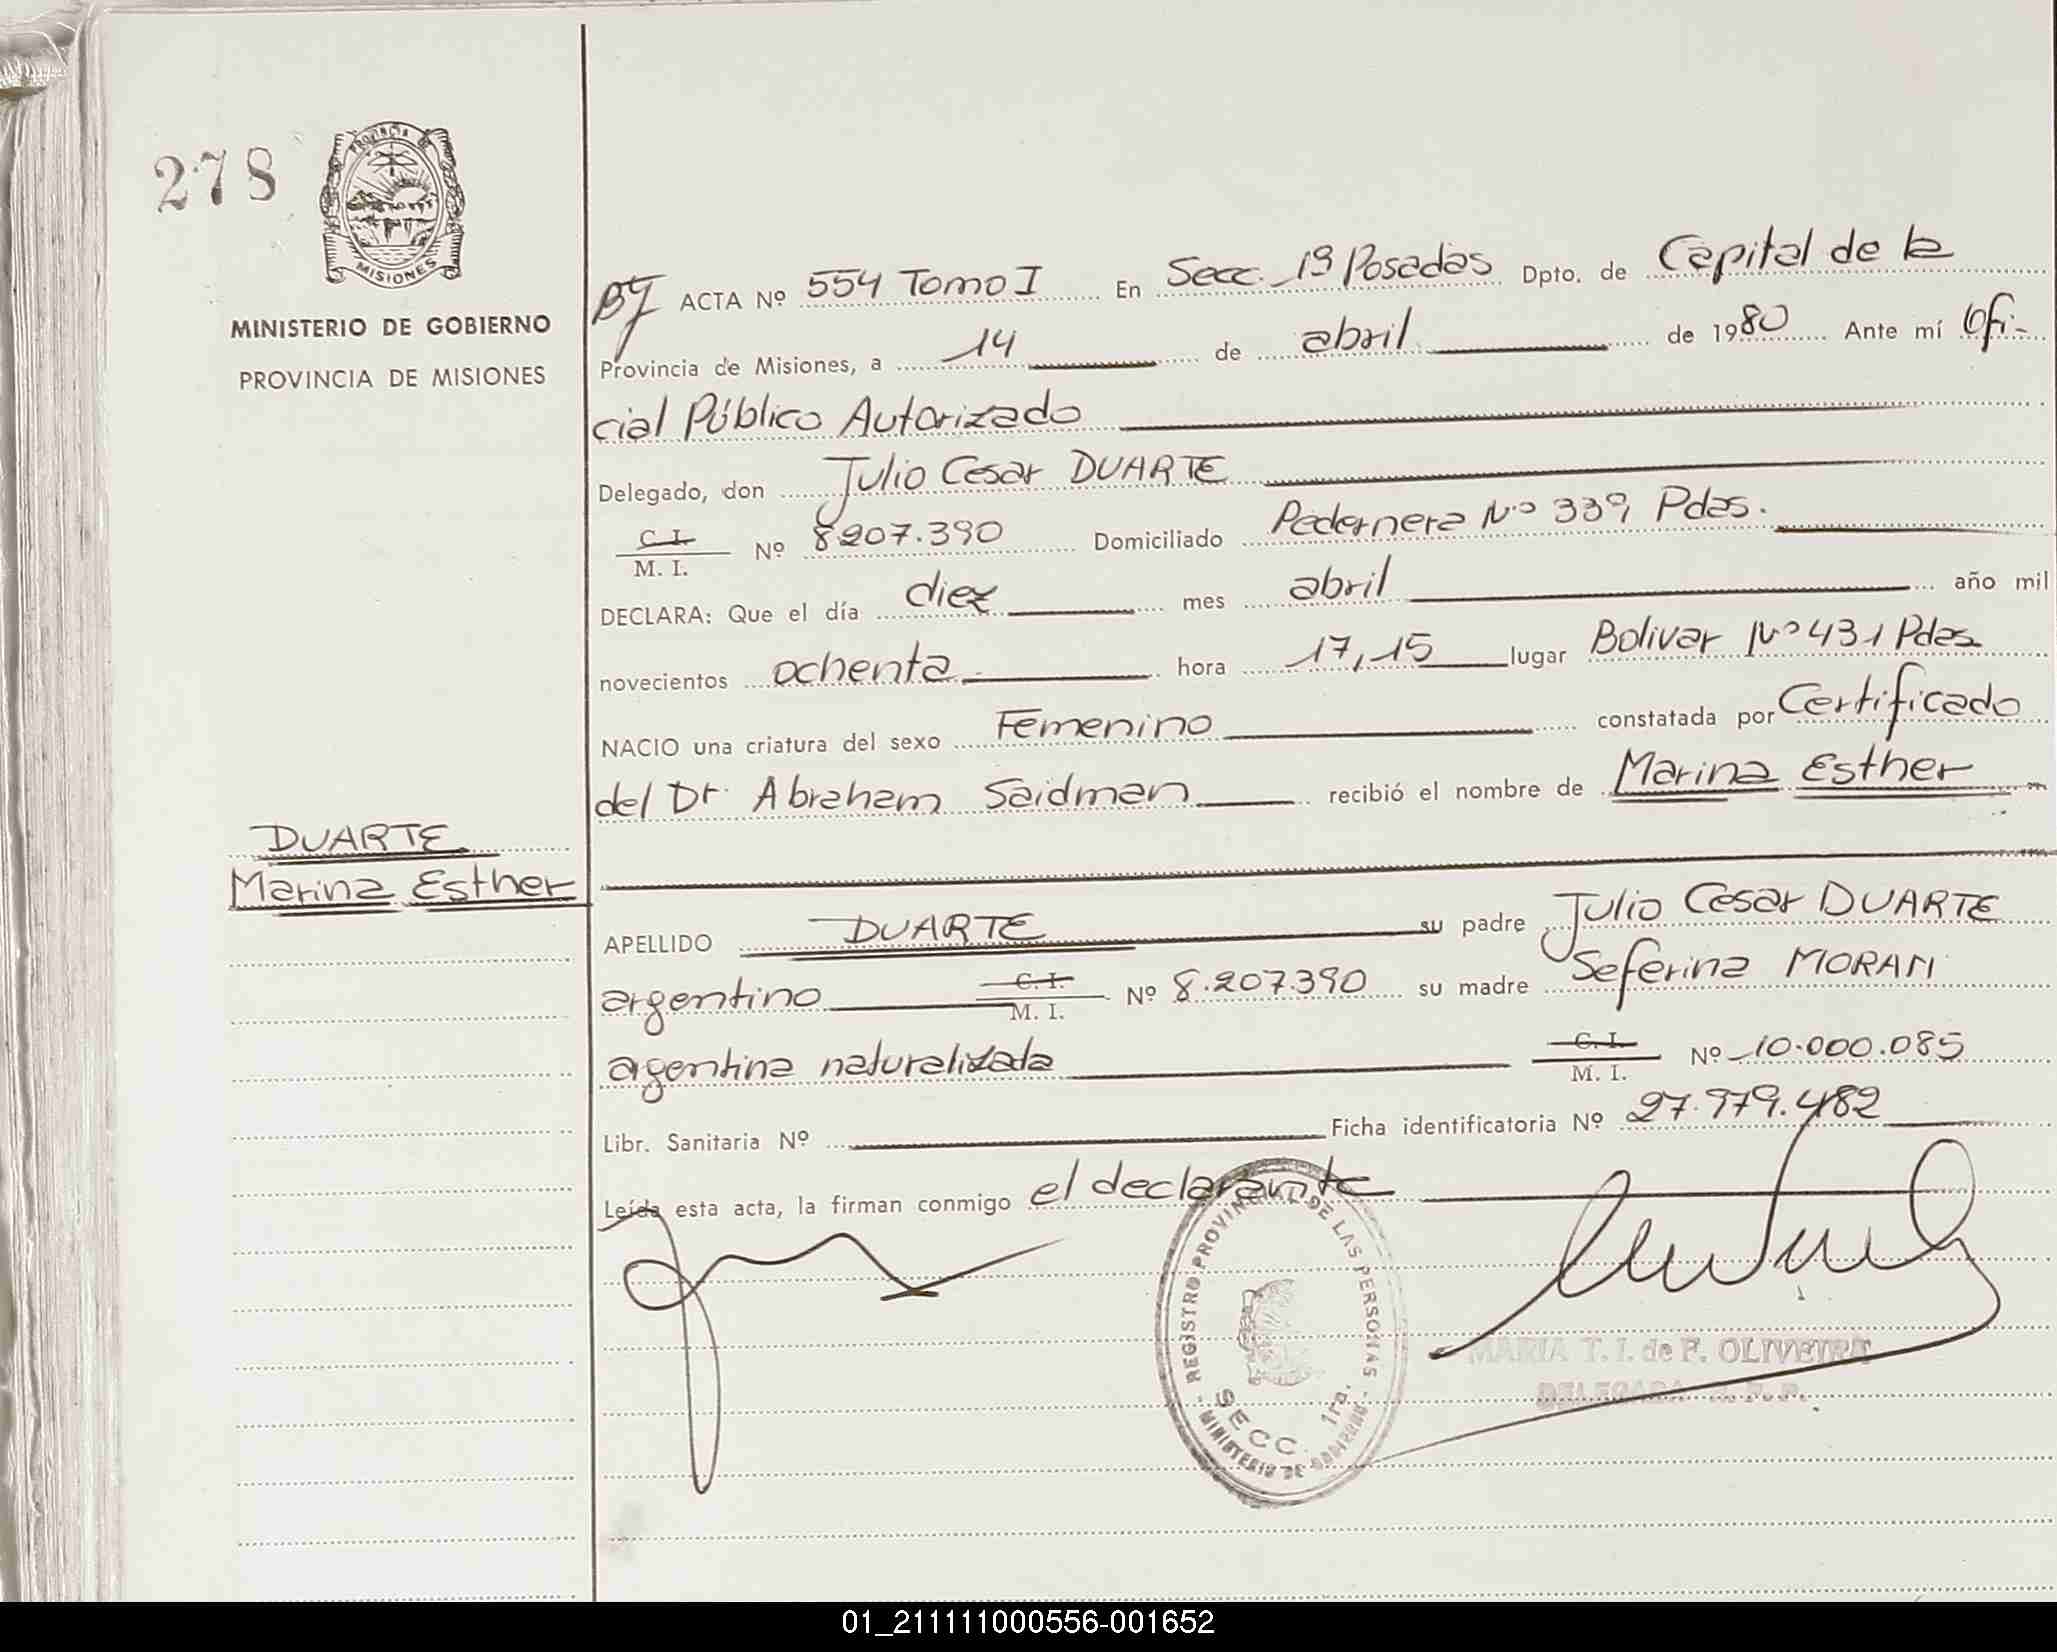 278
PROVINCIA DE
MISIONES
MINISTERIO DE GOBIERNO
PROVINCIA DE MISIONES
DUARTE
Marina Esther
ACTA Nº 554 Tomo I En Secc. 1ª Posadas Dpto. de Capital de la
Provincia de Misiones, a 14 de abril de 1980 Ante mí Ofi-
cial Público Autorizado
Delegado, don Julio Cesar DUARTE
C. I.
M. I. Nº 8207.390 Domiciliado Pedernera Nº 339 Pdas.
DECLARA: Que el día diez mes abril año mil
novecientos ochenta hora 17,15 lugar Bolivar Nº 431 Pdas
NACIO una criatura del sexo Femenino constatada por Certificado
del Dr. Abraham Saidman recibió el nombre de Marina Esther
APELLIDO DUARTE su padre Julio Cesar DUARTE
argentino C. I. M. I. Nº 8.207.390 su madre Seferina MORAN
argentina naturalizada C. I. M. I. Nº 10.000.085
Libr. Sanitaria Nº Ficha identificatoria Nº 27.979.482
Leída esta acta, la firman conmigo el declarante
REGISTRO PROVINCIAL DE LAS PERSONAS
SECC. 1ra.
MINISTERIO DE GOBIERNO
MARIA T. I. de F. OLIVEIRA
DELEGADA R. P. P.
01_211111000556-001652